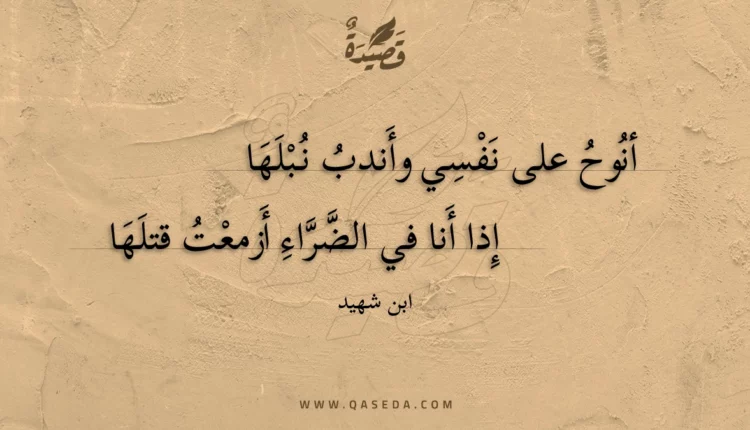 قَصِيْدَةٌ
أنُوحُ على نَفْسِي وأَندبُ نُبْلَهَا
إِذا أَنا في الضَّرَّاءِ أَزمعْتُ قتلَهَا
ابن شهيد
WWW.QASEDA.COM